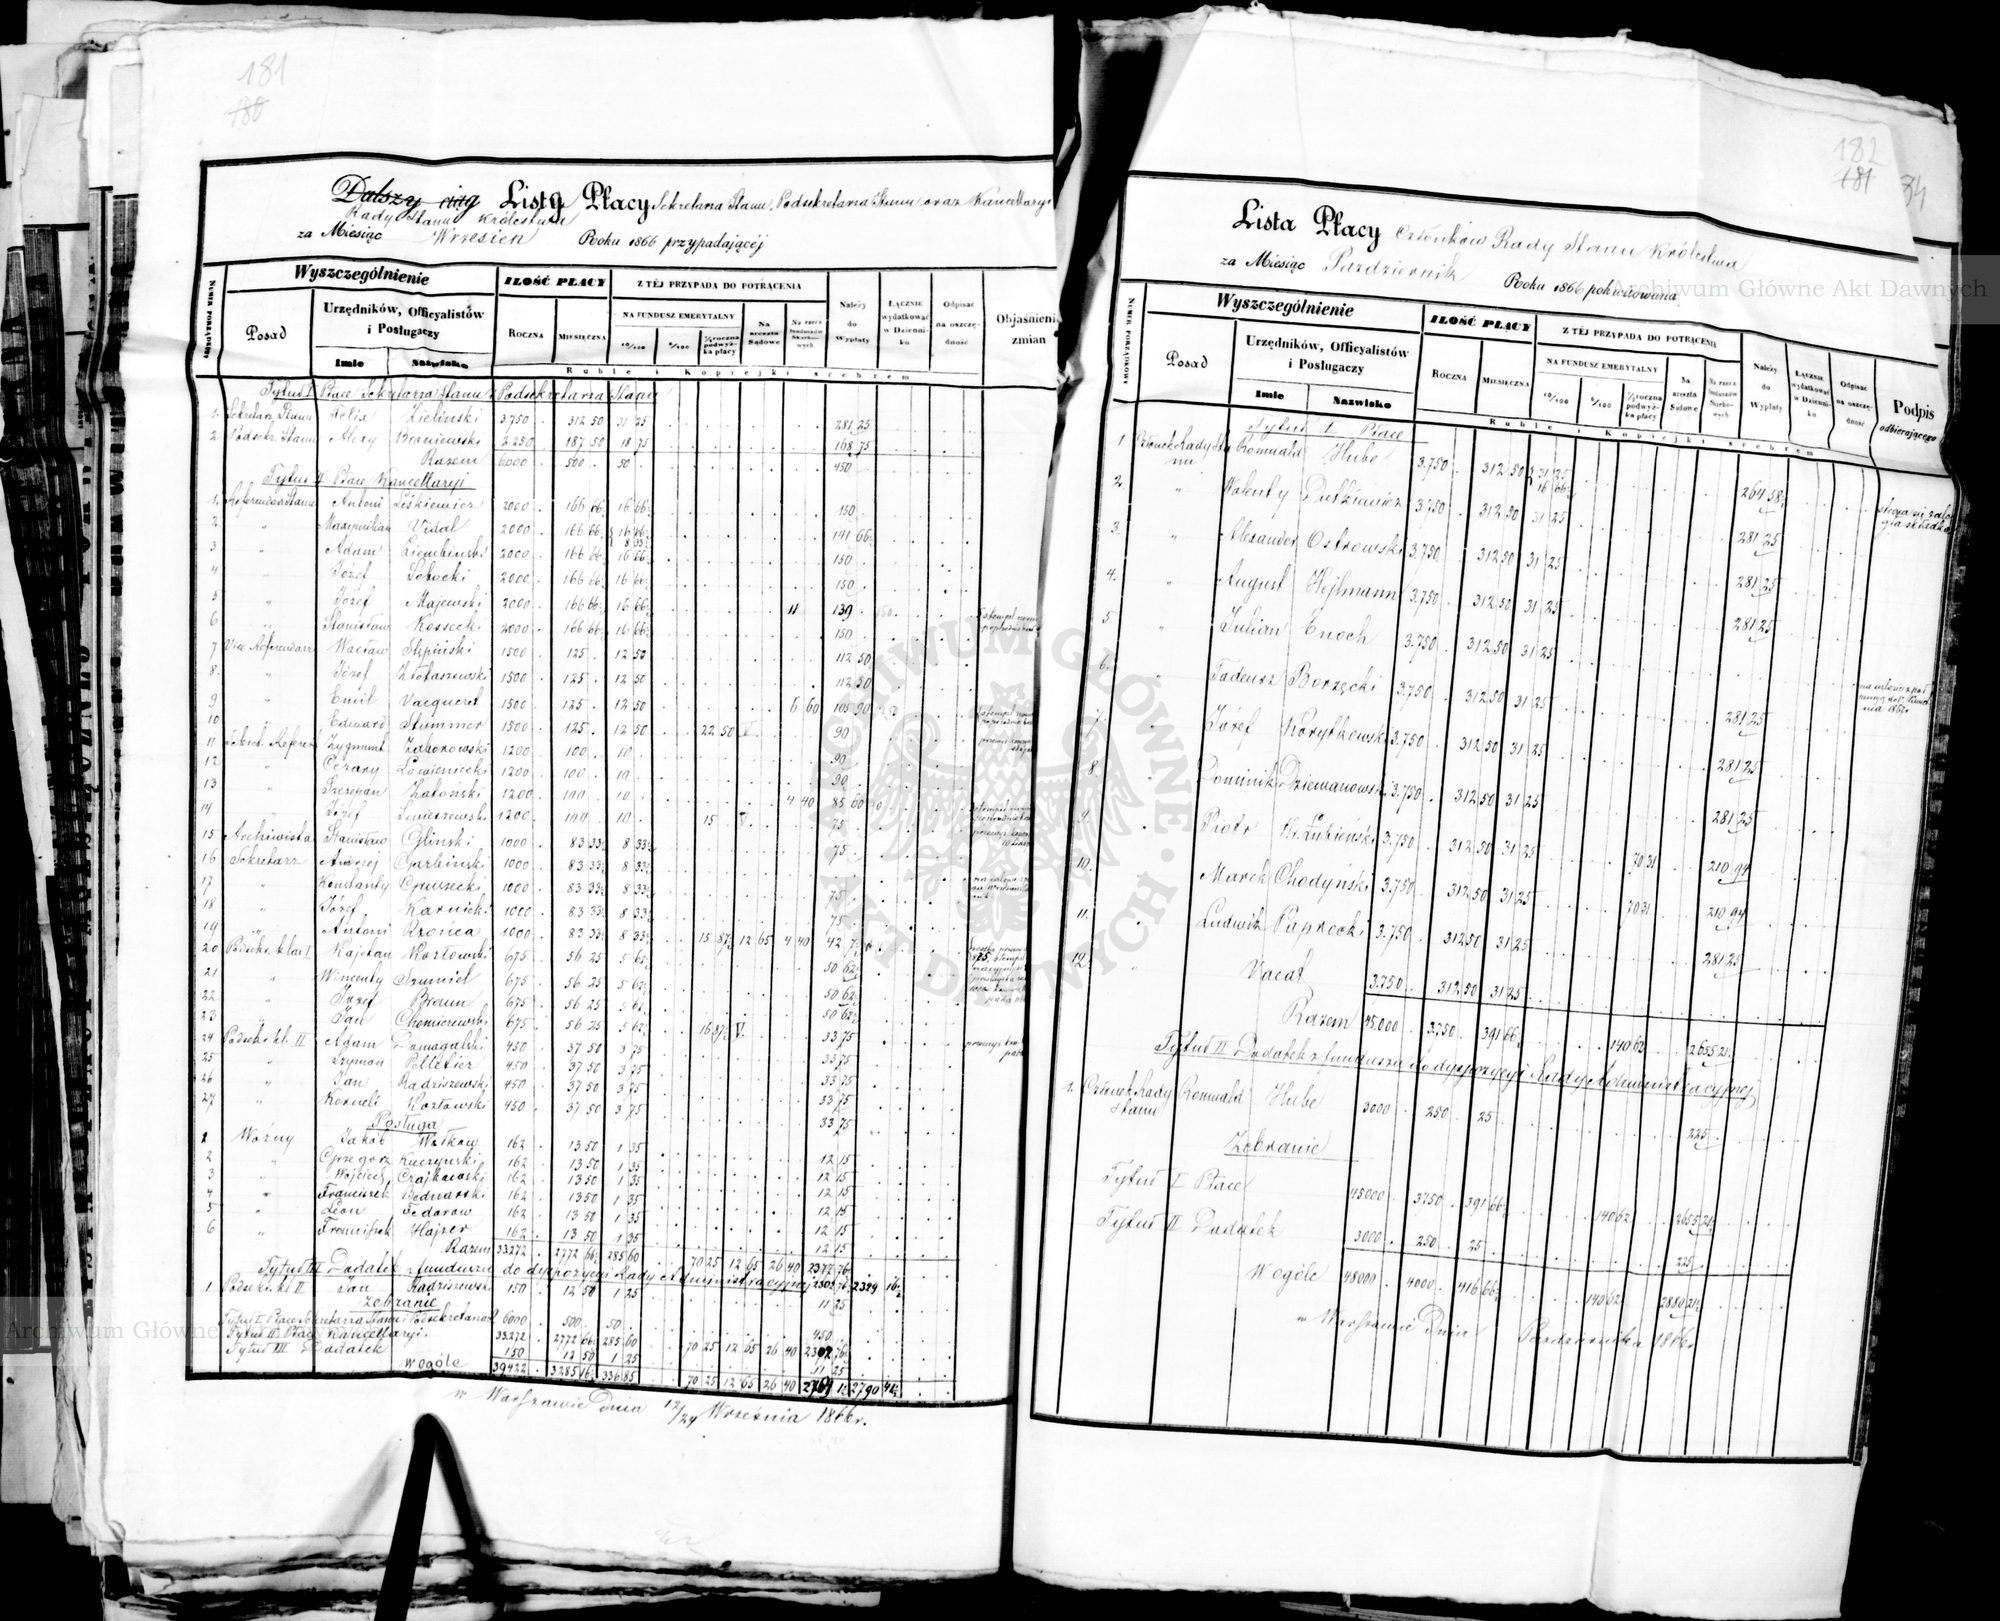 181
180
Dalszy ciąg Listy Płacy Sekretarza Stanu, Podsekretarza Stanu oraz Kancellaryi
Rady Stanu Królestwa
za Miesiąc Wrzesień Roku 1866 przypadającéj
NUMER PORZĄDKOWY
Wyszczególnienie
ILOŚĆ PŁACY
Z TÉJ PRZYPADA DO POTRĄCENIA
Posad
Urzędników, Officyalistów i Posługaczy
Imie Nazwisko
ROCZNA MIESIĘCZNA
NA FUNDUSZ EMERYTALNY
10/100 6/100 1/2 roczna podwyżka płacy
Na areszta Sądowe
Na rzecz funduszów Skarbowych
Należy do Wypłaty
ŁĄCZNIE wydatkować w Dzienniku
Odpisać na oszczędność
Objaśnieni zmian
Ruble i Kopiejki srebrem
Tytuł I Płace Sekretarza Stanu i Podsekretarza Stanu
1. Sekretarz Stanu Felix Zieliński 3.750 312 50 31 25 281 25
2 Podsekr. Stanu Alexy Braniewski 2250 187 50 18 75 168 75
Razem 6000 500 50 450
Tytuł II Płace Kancellaryi
1. Referendarz Stanu Antoni Liśkiewicz 2000 166 66 16 66 150
2 " Maxymilian Vidal 2000 166 66 16 66 8 33 141 66
3 " Adam Ziembiński 2000 166 66 16 66 150
4 " Józef Sobocki 2000 166 66 16 66 150
5 " Józef Majewski 2000 166 66 16 66 11 139
6 " Stanisław Kossecki 2000 166 66 16 66 150
7 Vice Referendarz Wacław Stępiński 1500 125 12 50 112 50
8. " Józef Złotaszewski 1500 125 12 50 112 50
9 " Emil Vacqueret 1500 125 12 50 6 60 105 90
10 " Edward Stummer 1500 125 12 50 22 50 90
11 Sekret. Refer. Zygmunt Zaborowski 1200 100 10 90
12 " Cezary Łowieniecki 1200 100 10 90
13 " Szczepan Zatoński 1200 100 10 4 40 85 60
14 " Józef 1200 100 10 15 75
15 Archiwista Stanisław Gliński 1000 83 33 8 33 75
16 Sekretarz Andrzej Garbiński 1000 83 33 8 33
17 " Konstanty 1000 83 33 8 33 75
18 " Józef Karnicki 1000 83 33 8 33 75
19 " Antoni Rzońca 1000 83 33 8 33 15 87 12 65 4 40 42 7
20 Podsekr. klas I Kajetan Kozłowski 675 56 25 5 62 50 62
21 " Wincenty Szumiel 675 56 25 5 62 50 62
22 " Józef Braun 675 56 25 5 62 50 62
23 " Jan Chomiczewski 675 56 25 5 62 16 87 33 75
24 Podsekr. kl. II Adam Domagalski 450 37 50 3 75 33 75
25 " Szymon Pelletier 450 37 50 3 75 33 75
26 " Jan Radziszewski 450 37 50 3 75 33 75
27 " Korneli Kozłowski 450 37 50 3 75 33 75
Posługa
1 Woźny Jakób Wołkow 162 13 50 1 35 12 15
2 " Grzegorz Kuczyński 162 13 50 1 35 12 15
3 " Wojciech Czajkowski 162 13 50 1 35 12 15
4 " Franciszek Bednarski 162 13 50 1 35 12 15
5 " Leon Fedorow 162 13 50 1 35 12 15
6 " Franciszek Hajzer 162 13 50 1 35 12 15
Razem 33272 2772 66 285 60 70 25 12 65 26 40 2377 76
Tytuł III Dodatek z funduszu do dyspozycyi Rady Administracyjnej 2329 16
1 Podsekr. kl. II Jan Radziszewski 150 12 50 1 25 11 25
Zebranie
Tytuł I Płace Sekretarza Stanu i Podsekretarza 6000 500 50 450
Tytuł II Płace Kancellaryi 33272 2772 66 285 60 70 25 12 65 26 40
Tytuł III Dodatek 150 12 50 1 25 11 25
w ogóle 39422 3285 16 336 85 70 25 12 65 26 40 2790 41
w Warszawie Dnia 12/24 Września 1866 r.
182
181
84
Lista Płacy Członków Rady Stanu Królestwa
za Miesiąc Pazdziernik Roku 1866 pokwitowana
NUMER PORZĄDKOWY
Wyszczególnienie
ILOŚĆ PŁACY
Z TÉJ PRZYPADA DO POTRĄCENIA
Posad
Urzędników, Officyalistów i Posługaczy
Imie Nazwisko
ROCZNA MIESIĘCZNA
NA FUNDUSZ EMERYTALNY
10/100 6/100 1/2 roczna podwyżka płacy
Na areszta Sądowe
Na rzecz funduszów Skarbowych
Należy do Wypłaty
ŁĄCZNIE wydatkować w Dzienniku
Odpisać na oszczędność
Podpis odbierającego
Ruble i Kopiejki srebrem
Tytuł I Płace
1 Członek Rady Stanu Romuald Hube 3.750 312 50 31 25 16 66 264 58
2. " Walenty Dutkiewicz 3.750 312 50 31 25 281 25
3. " Alexander Ostrowski 3.750 312 50 31 25 281 25
4. " August Hejlmann 3.750 312 50 31 25 281 25
5 " Julian Enoch 3.750 312 50 31 25
6. " Tadeusz Borzęcki 3.750 312 50 31 25 281 25
7. " Józef Korytkowski 3.750 312 50 31 25 281 25
8. " Dominik Dziewanowski 3.750 312 50 31 25 281 25
9. " Piotr Hr. Łubieński 3.750 312 50 31 25 70 31 210 94
10. " Marek Chodyński 3.750 312 50 31 25 70 31 210 94
11. " Ludwik Paprocki 3.750 312 50 31 25 281 25
12. " Vacat 3.750 312 50 31 25
Razem 45.000 3750 391 66 140 62 2655 21
Tytuł II Dodatek z funduszu do dyspozycyi Rady Administracyjnej
1. Członek Rady Stanu Romuald Hube 3000 250 25 225
Zebranie
Tytuł I Płace 45000 3750 391 66 140 62 2655 21
Tytuł II Dodatek 3000 250 25 225
W ogóle 48000 4000 416 66 140 62 2880 21
w Warszawie Dnia Pazdziernika 1866 r.
Archiwum Główne Akt Dawnych
Archiwum Główne
ARCHIWUM GŁÓWNE AKT DAWNYCH